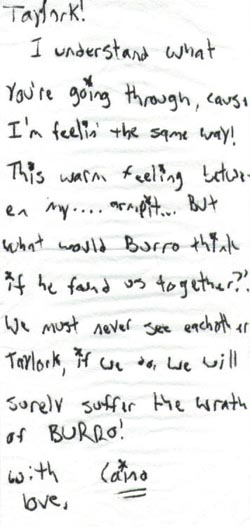 Taylork!
I understand what
you're going through, caus
I'm feelin' the same way!
This warm feeling betwe-
en my.... armpit... But
what would Burro think
if he found us together??
We must never see eachother
Taylork, if we do, we will
surely suffer the wrath
of BURRO!
with Caino
love,